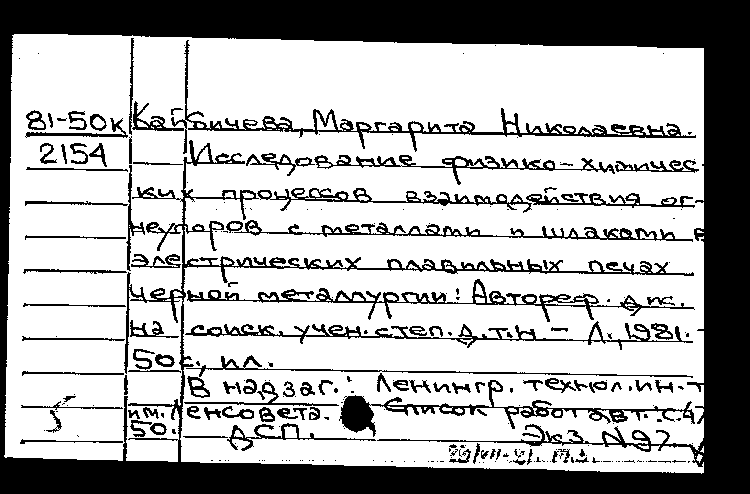 81-50к Кайбичева, Маргарита Николаевна.
2154 Исследование физико-химичес-
ких процессов взаимодействия ог-
неупоров с металлами и шлаками в
электрических плавильных печах
черной металлургии: Автореф. дис.
на соиск. учен. степ. д.т.н. - Л., 1981. -
50с., ил.
В надзаг.: Ленингр. технол. ин-т
им. Ленсовета. Список работ авт.: с. 47
50. ДСП. Экз. N 97.